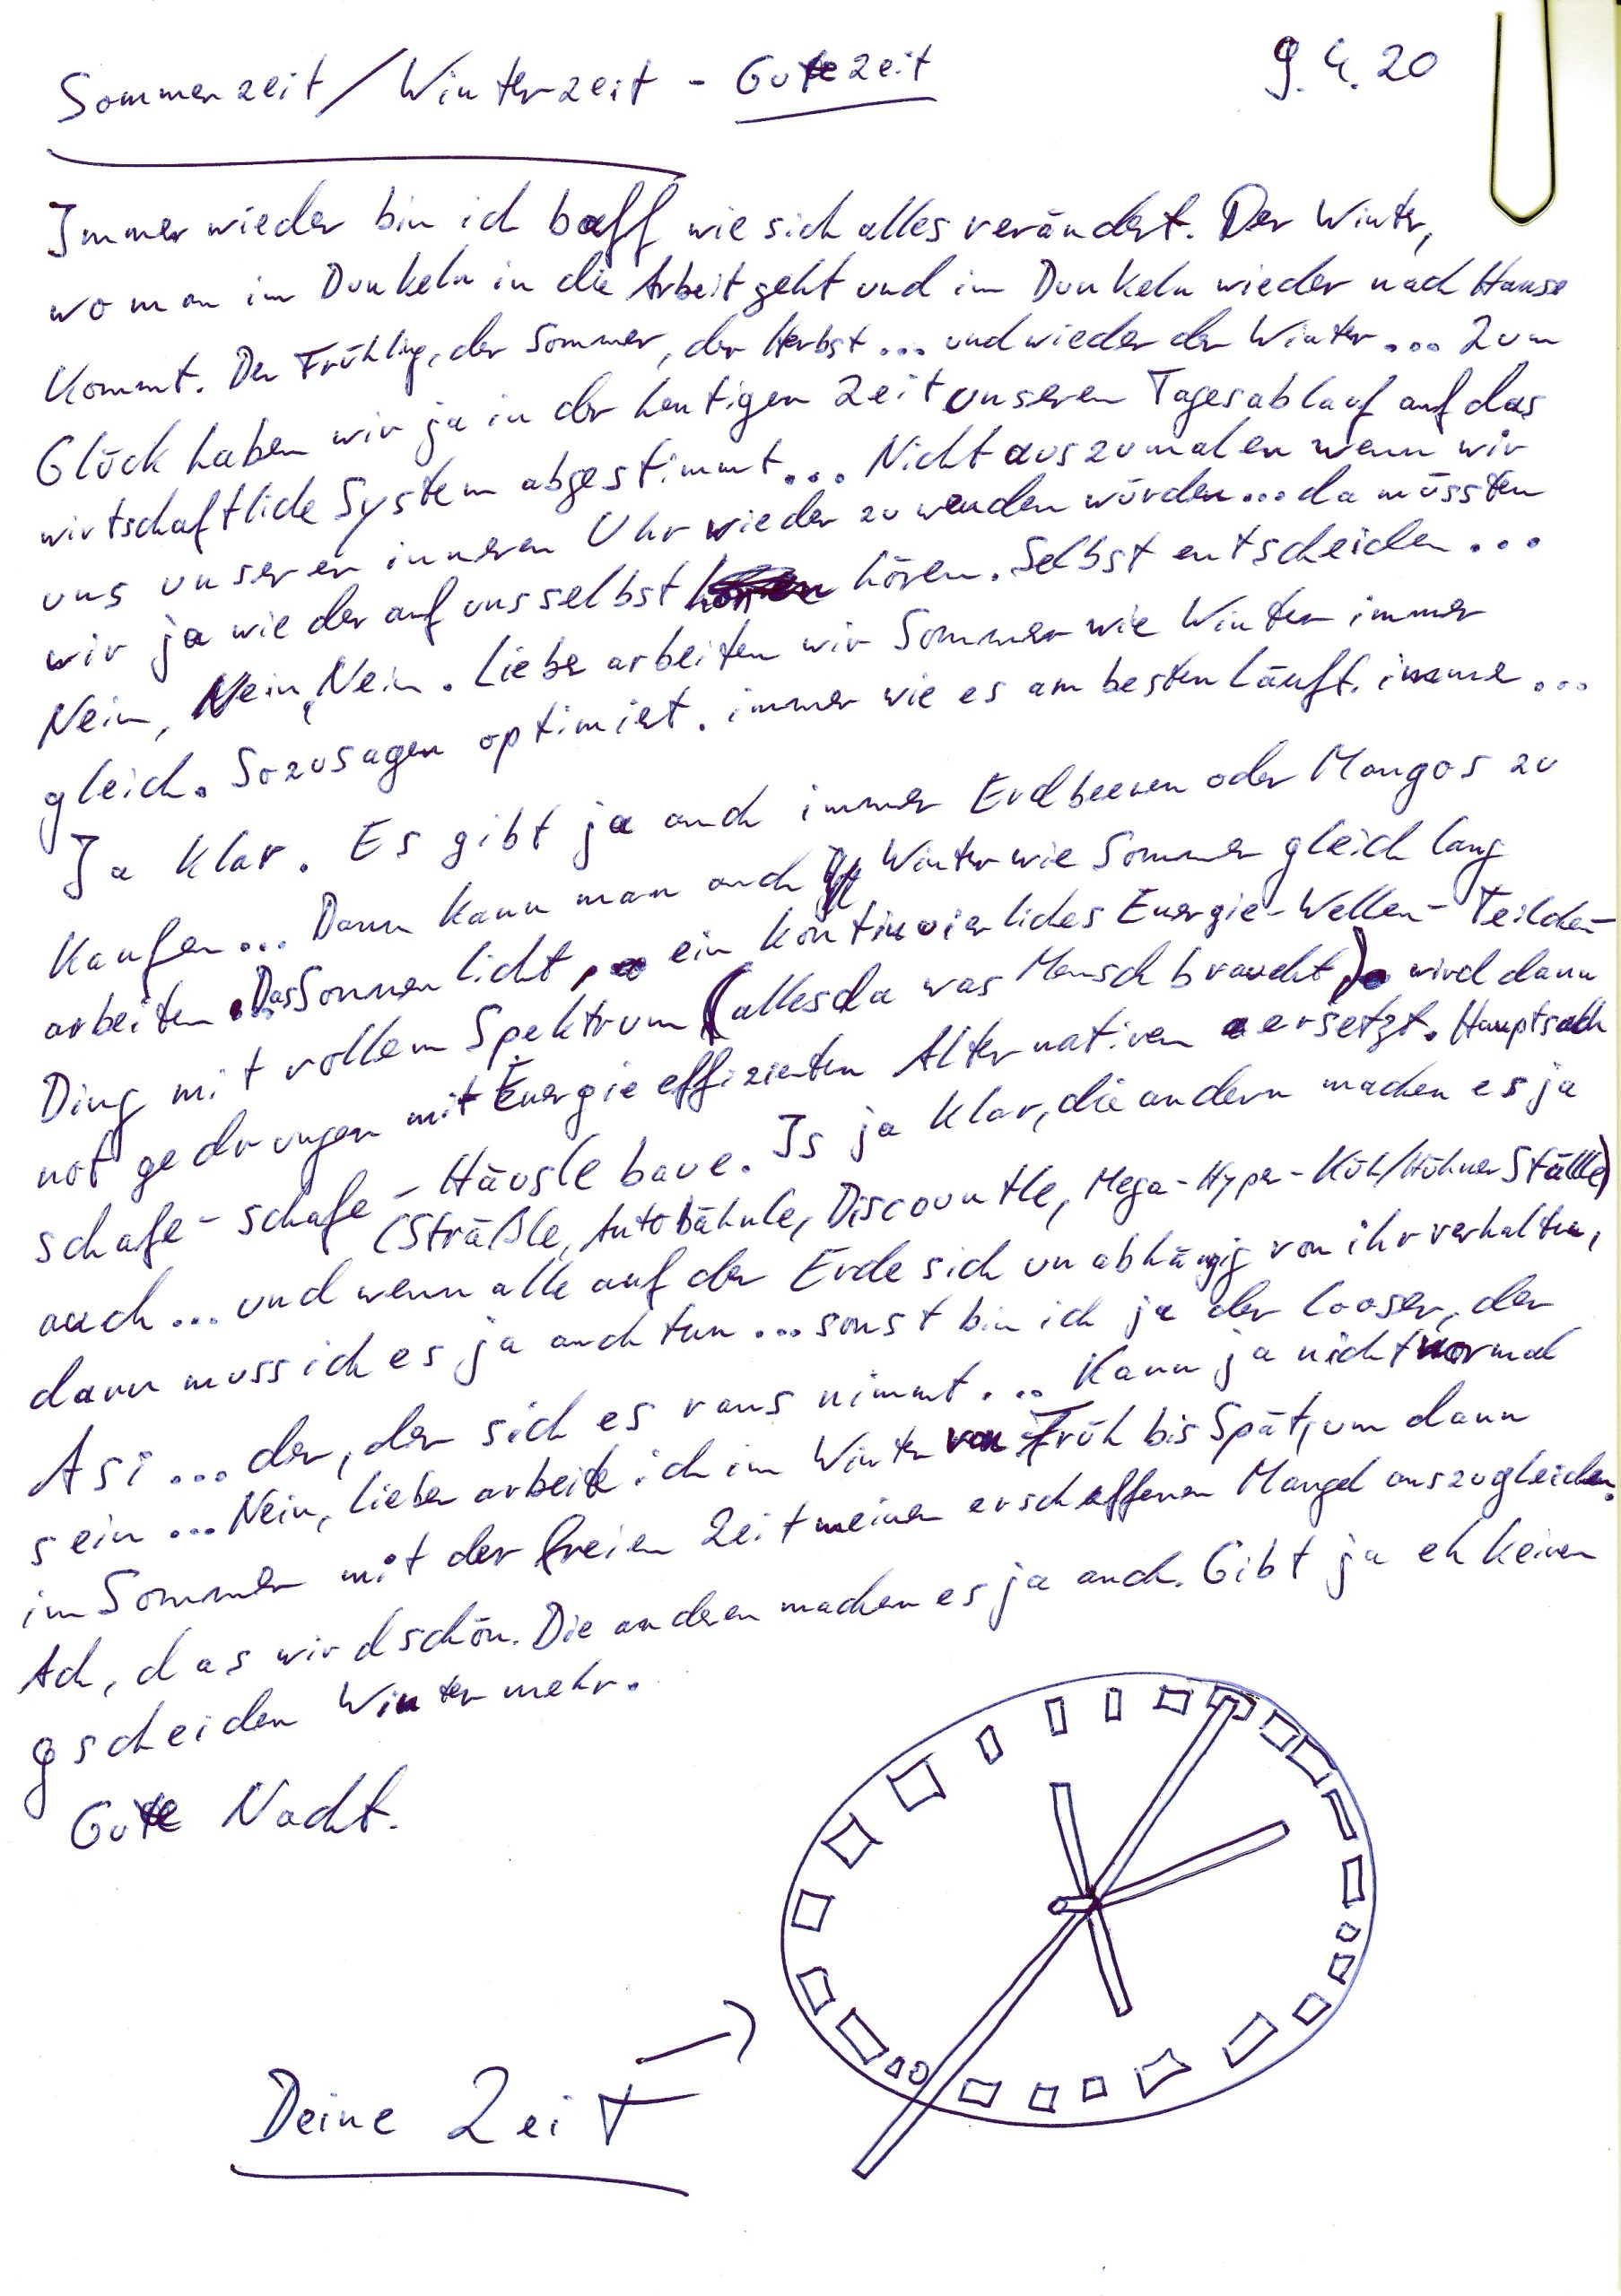 Sommerzeit/Winterzeit - Gute Zeit 9.4.20
Immer wieder bin ich baff wie sich alles verändert. Der Winter,
wo man im Dunkeln in die Arbeit geht und im Dunkeln wieder nach Hause
kommt. Der Frühling, der Sommer, der Herbst... und wieder der Winter... Zum
Glück haben wir ja in der heutigen Zeit unseren Tagesablauf auf das
wirtschaftliche System abgestimmt... Nicht auszumalen wenn wir
uns unserer inneren Uhr wieder zu wenden würden... da müssten
wir ja wieder auf uns selbst hören. Selbst entscheiden...
Nein, Nein, Nein. Liebe arbeiten wir Sommer wie Winter immer
gleich. Sozusagen optimiert. immer wie es am besten läuft. imme...
Ja klar. Es gibt ja auch immer Erdbeeren oder Mangos zu
kaufen... Dann kann man auch Winter wie Sommer gleich lang
arbeiten. Das Sonnenlicht, ein kontinuierliches Energie-Wellen-Teilchen-
Ding mit vollem Spektrum (alles da was Mensch braucht) wird dann
not gedrungen mit Energie effizienten Alternativen ersetzt. Hauptsach
schafe - schafe - Häusle baue. Is ja klar, die andern machen es ja
(Sträßle, Autobähnle, Discountle, Mega-Hyper-Küh/Hühner Ställe)
auch... und wenn alle auf der Erde sich unabhängig von ihr verhalten,
dann muss ich es ja auch tun... sonst bin ich ja der looser, der
Asi... der, der sich es raus nimmt... Kann ja nicht normal
sein... Nein, lieber arbeite ich im Winter von Früh bis Spät, um dann
im Sommer mit der freien Zeit meinen erschaffenen Mangel auszugleichen.
Ach, das wird schön. Die anderen machen es ja auch. Gibt ja eh keinen
gscheiden Winter mehr.
Gute Nacht.
Deine Zeit